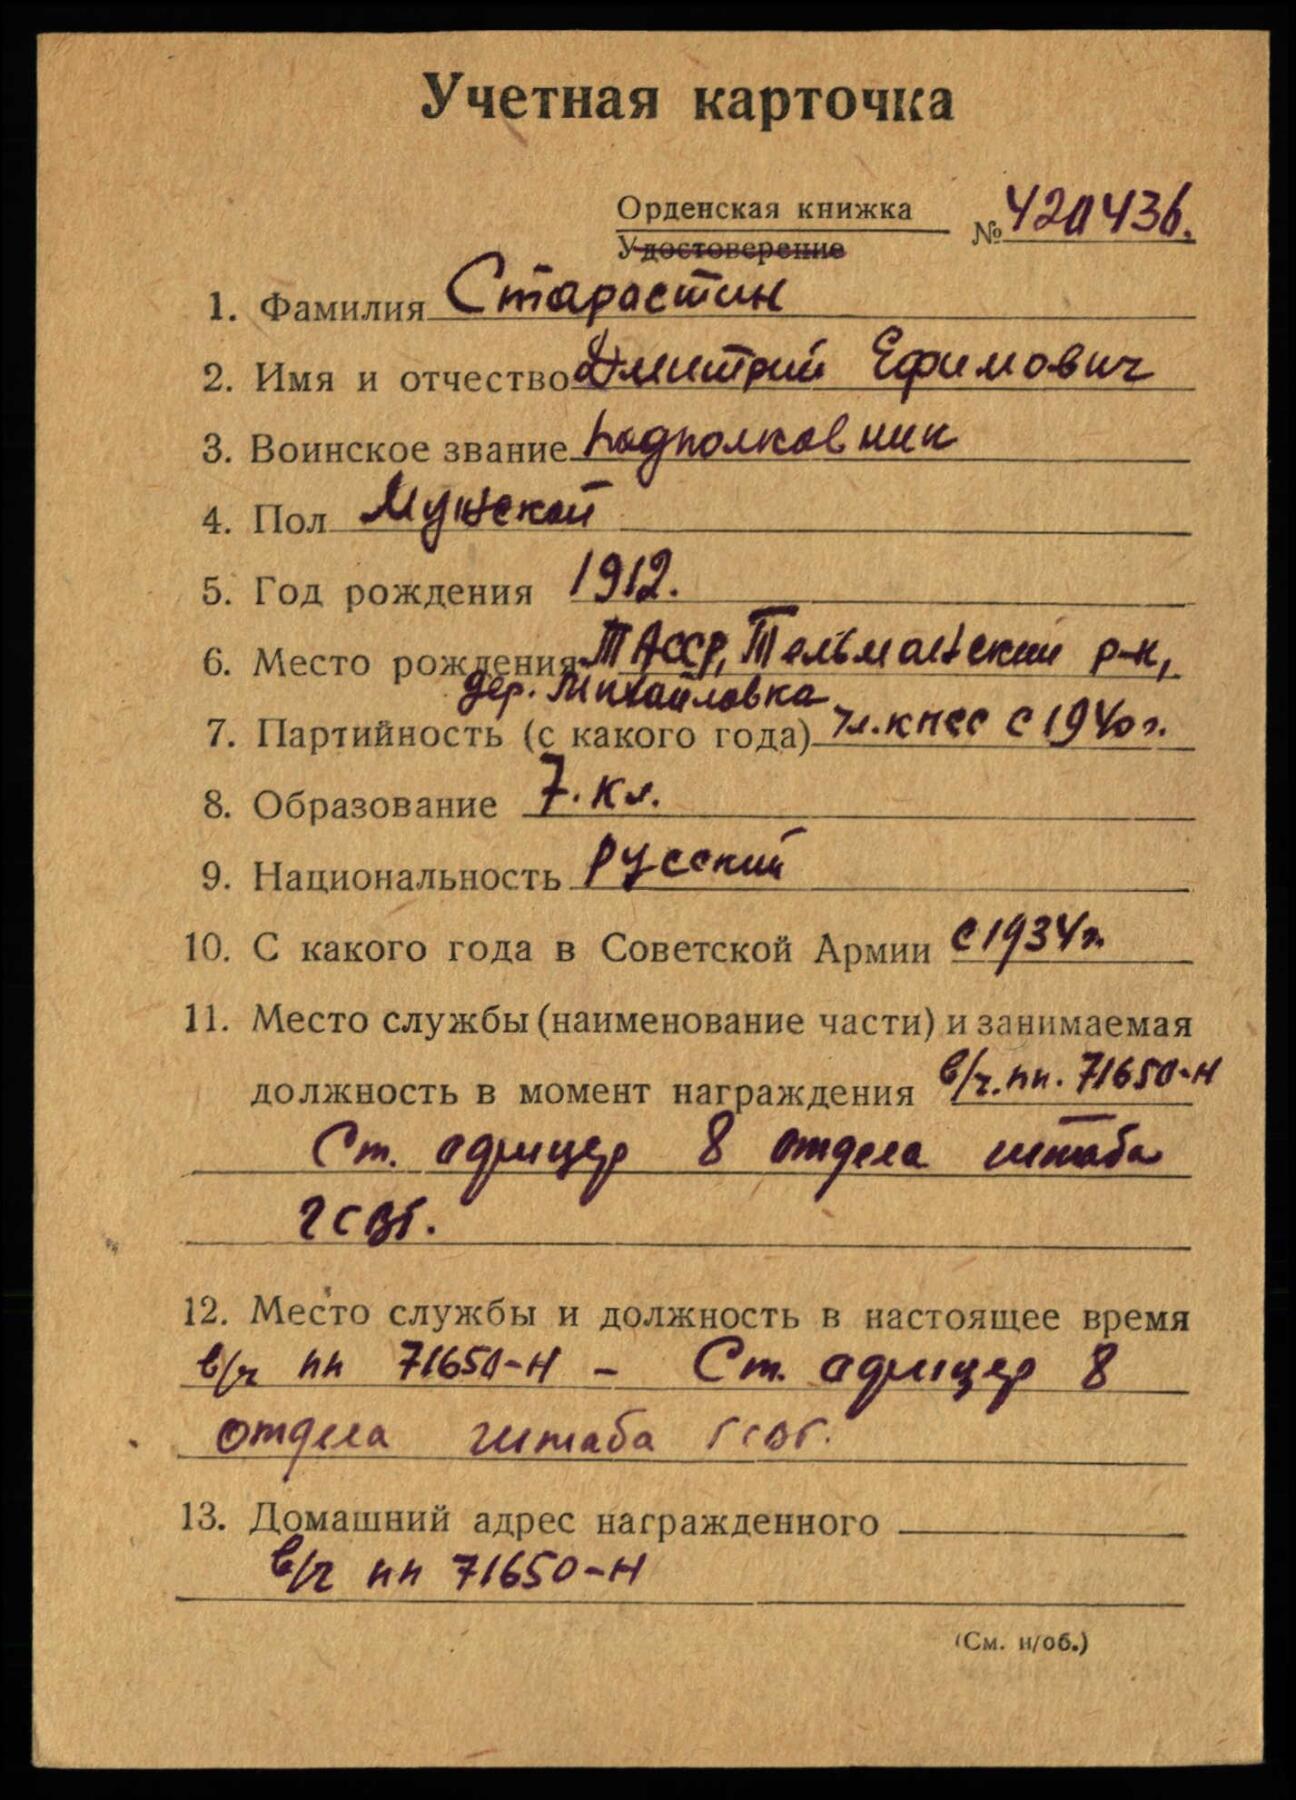 Учетная карточка
Орденская книжка № 420436.
Удостоверение
1. Фамилия Старастин
2. Имя и отчество Дмитрий Ефимович
3. Воинское звание подполковник
4. Пол Мужской
5. Год рождения 1912.
6. Место рождения ТАССР, Тельманский р-н,
дер. Михайловка
7. Партийность (с какого года) чл. кпсс с 1940 г.
8. Образование 7. кл.
9. Национальность русский
10. С какого года в Советской Армии с 1934 г.
11. Место службы (наименование части) и занимаемая
должность в момент награждения в/ч. пп. 71650-Н
Ст. офицер 8 отдела штаба
ГСВГ.
12. Место службы и должность в настоящее время
в/ч пп 71650-Н – Ст. офицер 8
отдела штаба ГСВГ.
13. Домашний адрес награжденного
в/ч пп 71650-Н
(См. н/об.)